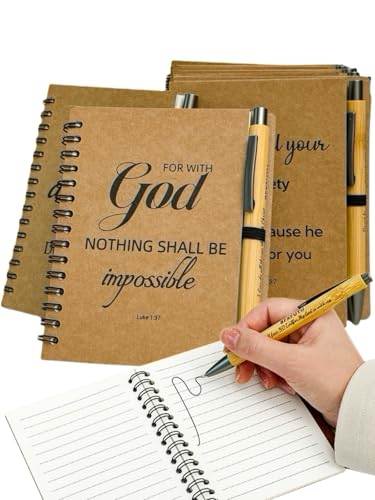 FOR WITH
God
NOTHING SHALL BE
impossible
Luke 1:37
your
ety
ause he
or you